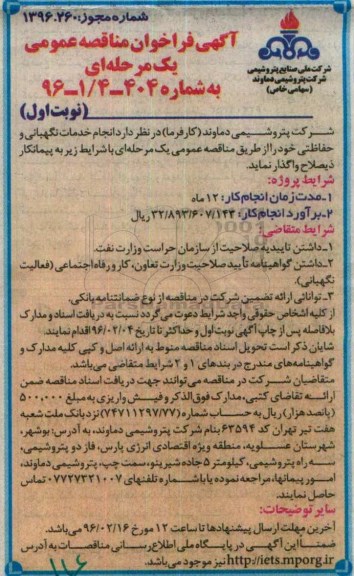 شماره مجوز: ۱۳۹۶.۲۶۰
شرکت ملی صنایع پتروشیمی
شرکت پتروشیمی دماوند
(سهامی خاص)
آگهی فراخوان مناقصه عمومی
یک مرحله‌ای
به شماره ۴۰۴-۱/۴-۹۶
(نوبت اول)
شرکت پتروشیمی دماوند (کارفرما) در نظر دارد انجام خدمات نگهبانی و
حفاظتی خود را از طریق مناقصه عمومی یک مرحله‌ای با شرایط زیر به پیمانکار
ذیصلاح واگذار نماید.
شرایط پروژه:
۱-مدت زمان انجام کار: ۱۲ ماه
۲-برآورد انجام کار: ۳۲/۸۹۳/۶۰۷/۱۴۳ ریال
شرایط متقاضی:
۱-داشتن تاییدیه صلاحیت از سازمان حراست وزارت نفت.
۲-داشتن گواهینامه تأیید صلاحیت وزارت تعاون، کار و رفاه اجتماعی (فعالیت
نگهبانی).
۳-توانائی ارائه تضمین شرکت در مناقصه از نوع ضمانتنامه بانکی.
از کلیه اشخاص حقوقی واجد شرایط دعوت می‌گردد نسبت به دریافت اسناد و مدارک
بلافاصله پس از چاپ آگهی نوبت اول و حداکثر تا تاریخ ۹۶/۰۲/۰۴ اقدام نمایند.
شایان ذکر است تحویل اسناد مناقصه منوط به ارائه اصل و کپی کلیه مدارک و
گواهینامه‌های مندرج در بندهای ۱ و ۲ شرایط متقاضی می‌باشد.
متقاضیان شرکت در مناقصه می‌توانند جهت دریافت اسناد مناقصه ضمن
ارائه تقاضای کتبی، مدارک فوق الذکر و فیش واریزی به مبلغ ۵۰۰,۰۰۰
(پانصد هزار) ریال به حساب شماره (۷۴۷۱۱۲۹۷/۷۷) نزد بانک ملت شعبه
هفت تیر تهران کد ۶۳۵۹۴ بنام شرکت پتروشیمی دماوند، به آدرس: بوشهر،
شهرستان عسلویه، منطقه ویژه اقتصادی انرژی پارس، فاز دو پتروشیمی،
سه راه پتروشیمی، کیلومتر ۵ جاده شیرینو، سمت چپ، پتروشیمی دماوند،
امور پیمانها، مراجعه نموده یا با شماره تلفنهای ۰۷۷۲۷۳۲۱۰۰۷ تماس
حاصل نمایند.
سایر توضیحات:
آخرین مهلت ارسال پیشنهادها تا ساعت ۱۲ مورخ ۹۶/۰۲/۱۶ می‌باشد.
ضمنا این آگهی در پایگاه ملی اطلاع رسانی مناقصات به آدرس
http://iets.mporg.ir نیز موجود می‌باشد.
۱۱۶